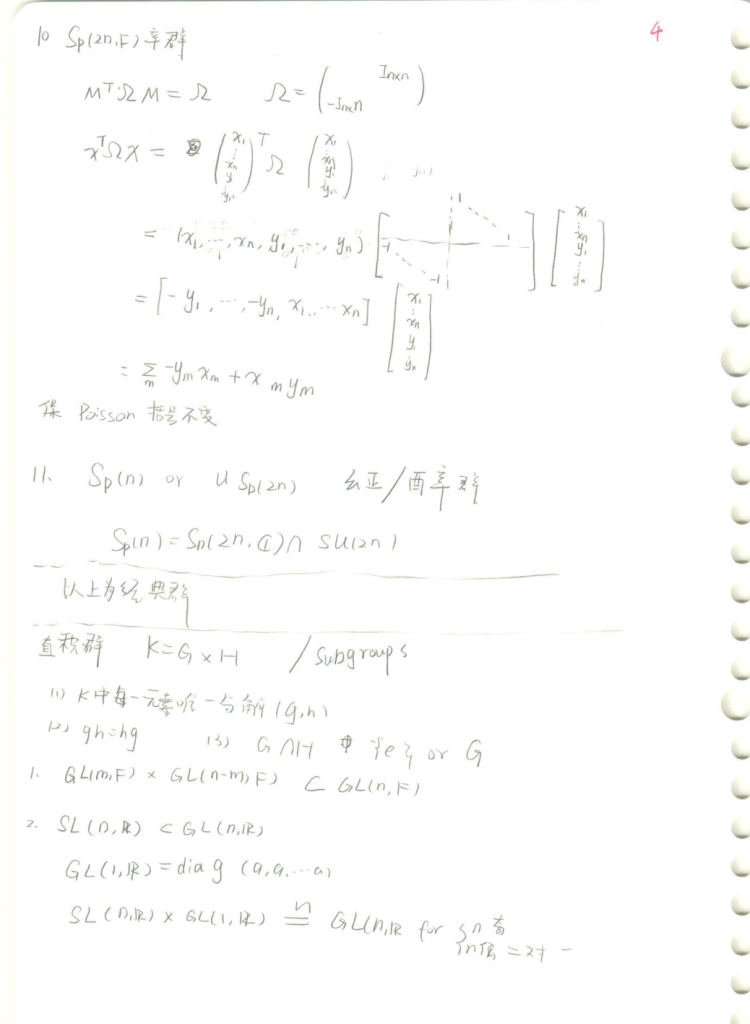 4
10 Sp(2n,F) 辛群
MᵀΩM = Ω  Ω = ( Iₙₓₙ -Iₙₓₙ )
xᵀΩx = (x₁ ⋮ xₙ y₁ ⋮ yₙ)ᵀ Ω (x₁ ⋮ xₙ y₁ ⋮ yₙ)
= (x₁, ⋯, xₙ, y₁, ⋯, yₙ) [ 1 1 -1 -1 ] [x₁ ⋮ xₙ y₁ ⋮ yₙ]
= [-y₁, ⋯, -yₙ, x₁, ⋯ xₙ] [x₁ ⋮ xₙ y₁ ⋮ yₙ]
= Σₘ -yₘxₘ + xₘyₘ
保 Poisson 括号不变
11. Sp(n) or USp(2n) 幺正/酉辛群
Sp(n) = Sp(2n, ℂ) ∩ SU(2n)
以上为经典群
直积群 K=G×H / subgroups
(1) K中每一元素唯一分解 (g,h)
(2) gh=hg (3) G∩H {e} or G
1. GL(m,F) × GL(n-m,F) ⊂ GL(n,F)
2. SL(n,ℝ) ⊂ GL(n,ℝ)
GL(1,ℝ) = diag (a,a,⋯a)
SL(n,ℝ) × GL(1,ℝ) ≅ GL(n,ℝ for { n 奇 n 偶 = 对一